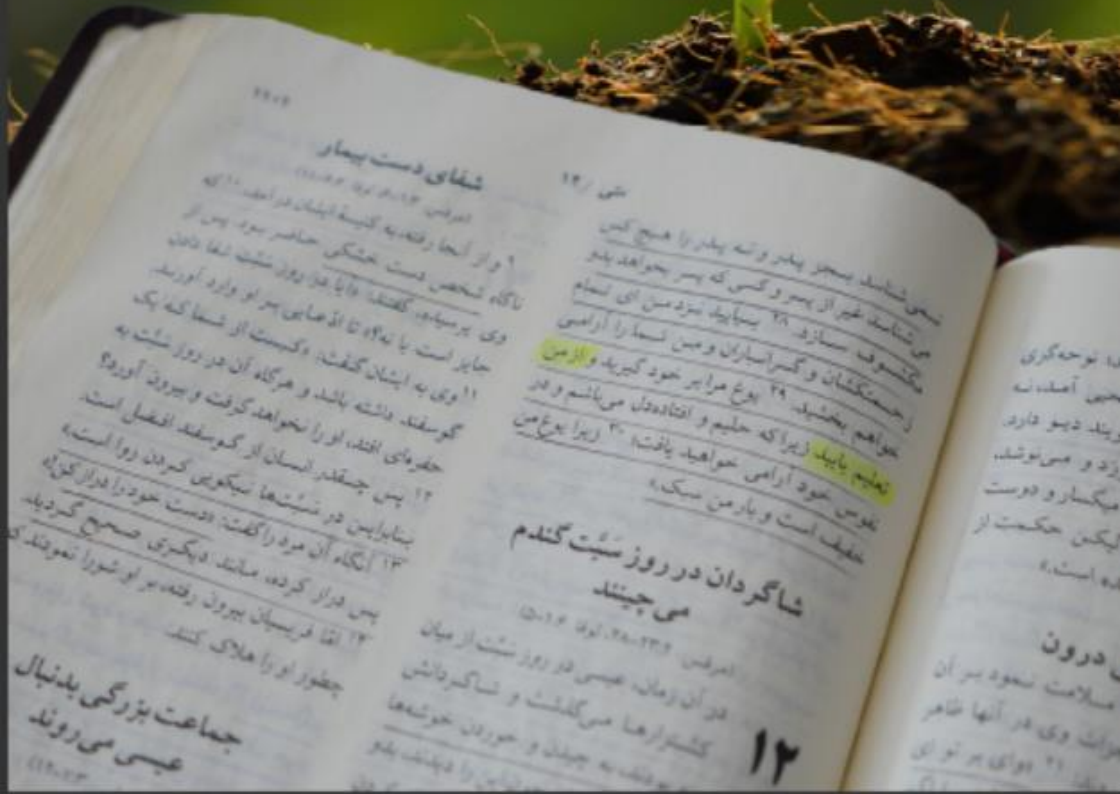 متی / ۱۲
نمی‌شناسد بجز پدر و نه پدر را هیچ کس
می‌شناسد غیر از پسر و کسی که پسر بخواهد بدو
مکشوف سازد. ۲۸ بیایید نزد من ای تمام
زحمتکشان و گرانباران و من شما را آرامی
خواهم بخشید. ۲۹ یوغ مرا بر خود گیرید و از من
تعلیم یابید زیرا که حلیم و افتاده‌دل می‌باشم و در
نفوس خود آرامی خواهید یافت؛ ۳۰ زیرا یوغ من
خفیف است و بار من سبک.»
شاگردان در روز سَبَّت گندم
می‌چینند
(مرقس ۲۳:۲-۲۸، لوقا ۱:۶-۵)
۱۲
در آن زمان، عیسی در روز سَبَّت از میان
کشتزارها می‌گذشت و شاگردانش
به چیدن و خوردن خوشه‌ها
را دیدند، بدو
شفای دست بیمار
۹ و از آنجا رفته، به کنیسهٔ ایشان درآمد، ۱۰ که
ناگاه شخص دست خشکی حاضر بود. پس از
وی پرسیده، گفتند: «آیا در روز سَبَّت شفا دادن
جایز است یا نه؟» تا ادعایی بر او وارد آورند.
۱۱ وی به ایشان گفت: «کیست از شما که یک
گوسفند داشته باشد و هرگاه آن در روز سَبَّت به
حفره‌ای افتد، او را نخواهد گرفت و بیرون آورد؟
۱۲ پس چقدر انسان از گوسفند افضل است.
بنابراین در سَبَّت‌ها نیکویی کردن روا است.»
۱۳ آنگاه آن مرد را گفت: «دست خود را دراز کن!»
پس دراز کرده، مانند دیگری صحیح گردید.
۱۴ امّا فریسیان بیرون رفته، بر او شورا نمودند که
چطور او را هلاک کنند.
جماعت بزرگی بدنبال
عیسی می‌روند
توحه‌گری
آمد، نه
دیو دارد.
و می‌نوشد،
میگسار و دوست
لیکن حکمت از
است.»
درون
ملامت نمود بر آن
وی در آنها ظاهر
۲۱ «وای بر تو ای